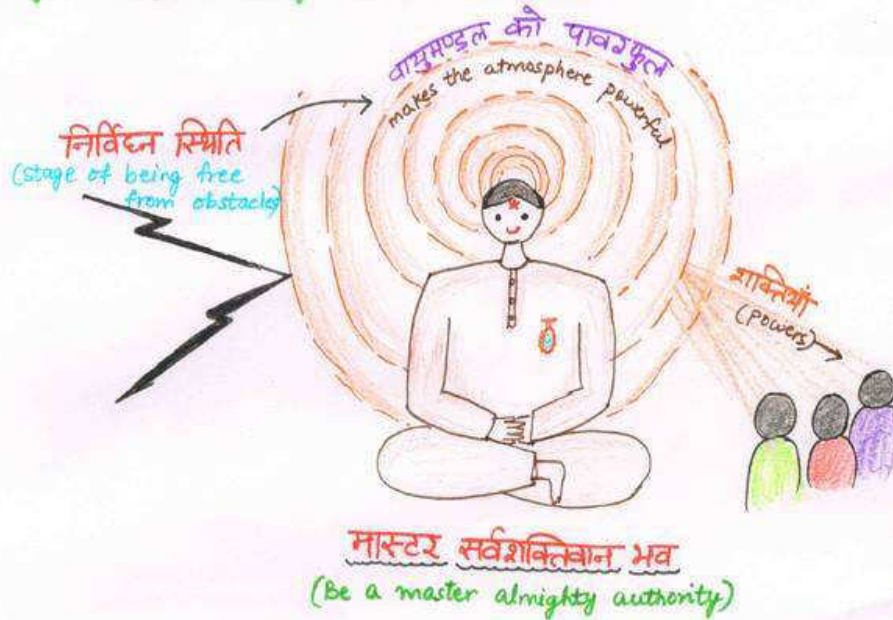 वायुमण्डल को पावरफुल
makes the atmosphere powerful
निर्विघ्न स्थिति
(stage of being free
from obstacles)
शक्तियाँ
(powers)
मास्टर सर्वशक्तिवान भव
(Be a master almighty authority)